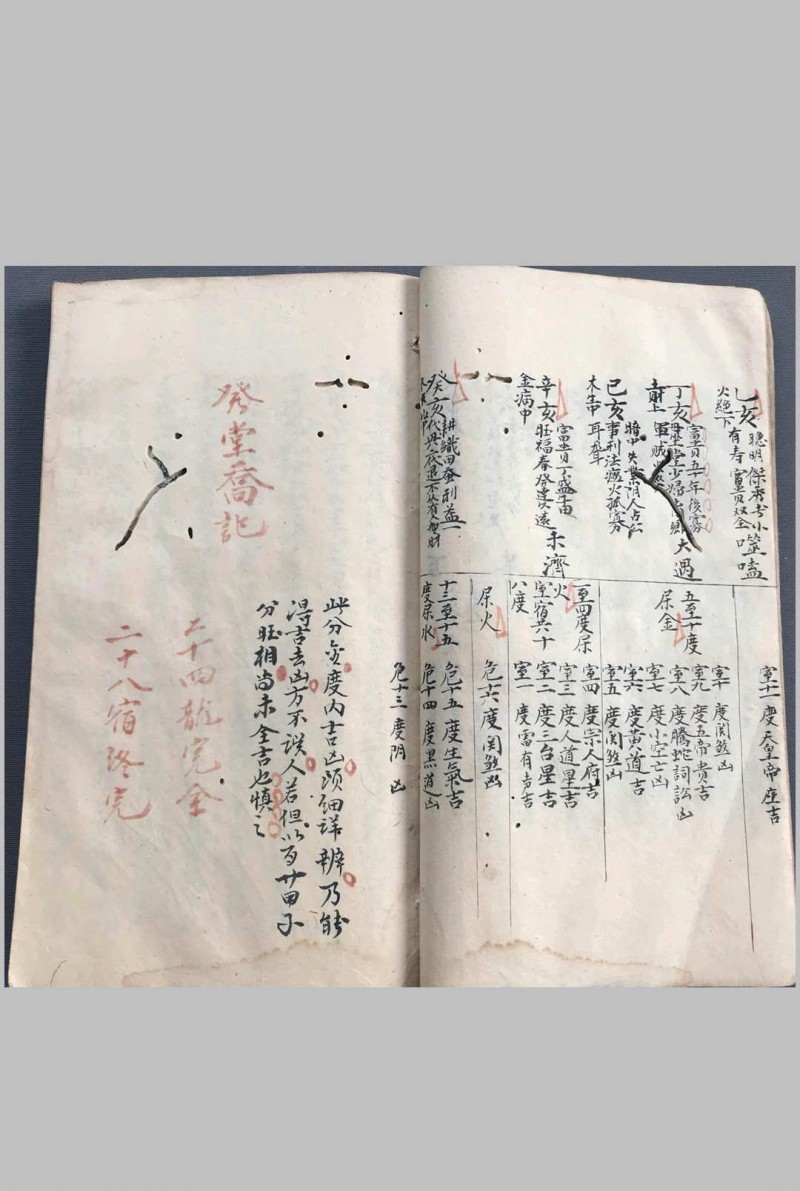 乙亥
聰明傑秀
有寿富贝双全
火絕下
噬嗑
丁亥
富贝五年後寡
大過
己亥
事刑法
木生中
辛亥
金病中
未濟
癸亥
耕織田蚕刑益
五至十度
尿金
一至四度尿
火
室宿共六十
八度
尿火
十三至十五
度尿水
室十一度天皇帝座吉
室十度関煞凶
室九度五帝贵吉
室八度騰蛇詞訟凶
室七度小空亡凶
室六度黄道吉
室五度関煞凶
室四度宗人府吉
室三度人道星吉
室二度三台星吉
室一度雷有声吉
危十六度関煞凶
危十五度生氣吉
危十四度黑道凶
危十三度阴凶
此分金度内吉凶须细详辨乃能
得吉去凶方不误人若但以百廿甲子
分旺相尚未全吉也慎之
癸堂喬記
二十四龍完全
二十八宿终完